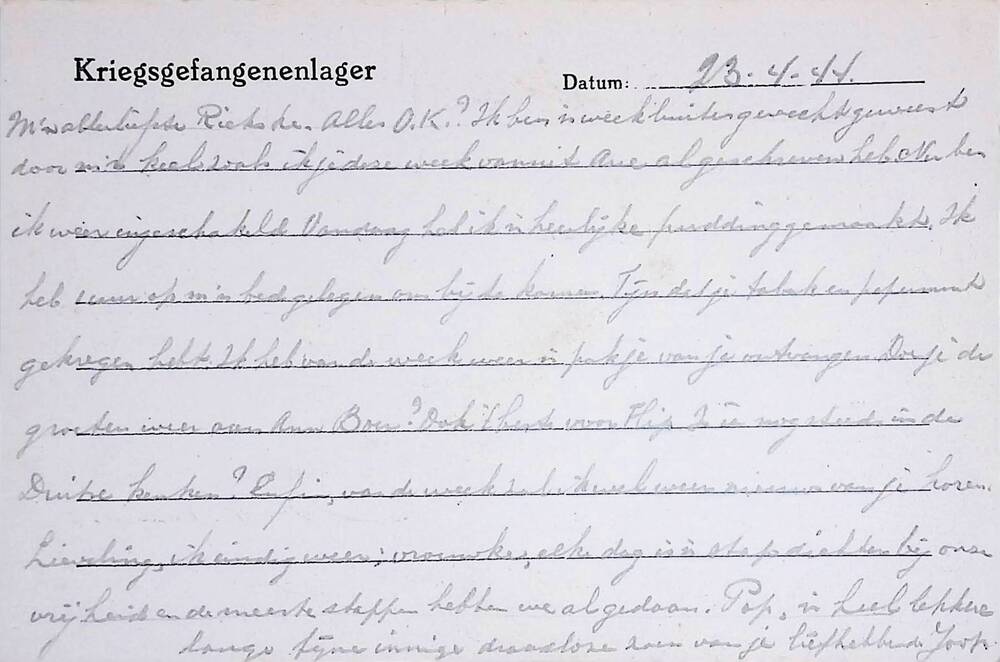 Kriegsgefangenenlager
Datum: 23-4-44.
M'n allerliefste Riekske. Alles O.K.? Ik ben 'n week buiten gevecht geweest
door m'n keel zoals ik je deze week vanuit Aue al geschreven heb. Nu ben
ik weer ingeschakeld. Vandaag heb ik 'n heerlijke pudding gemaakt. Ik
heb uur op m'n bed gelegen om bij te komen. Fijn dat je tabak en pepermunt
gekregen hebt. Ik heb van de week weer 'n pakje van je ontvangen. Doe je de
groeten weer aan Ann Boer? Ook 't beste voor Flip. Is nog steeds in de
keuken? Enfin, van de week zal ik wel weer nieuws van je horen.
Lieveling, ik eindig weer; vrouwke, elke dag is 'n stap dichter bij onze
vrijheid en de meeste stappen hebben we al gedaan. Pop, 'n heel lekkere
lange fijne innige draadloze zoen van je liefhebbende Joop.